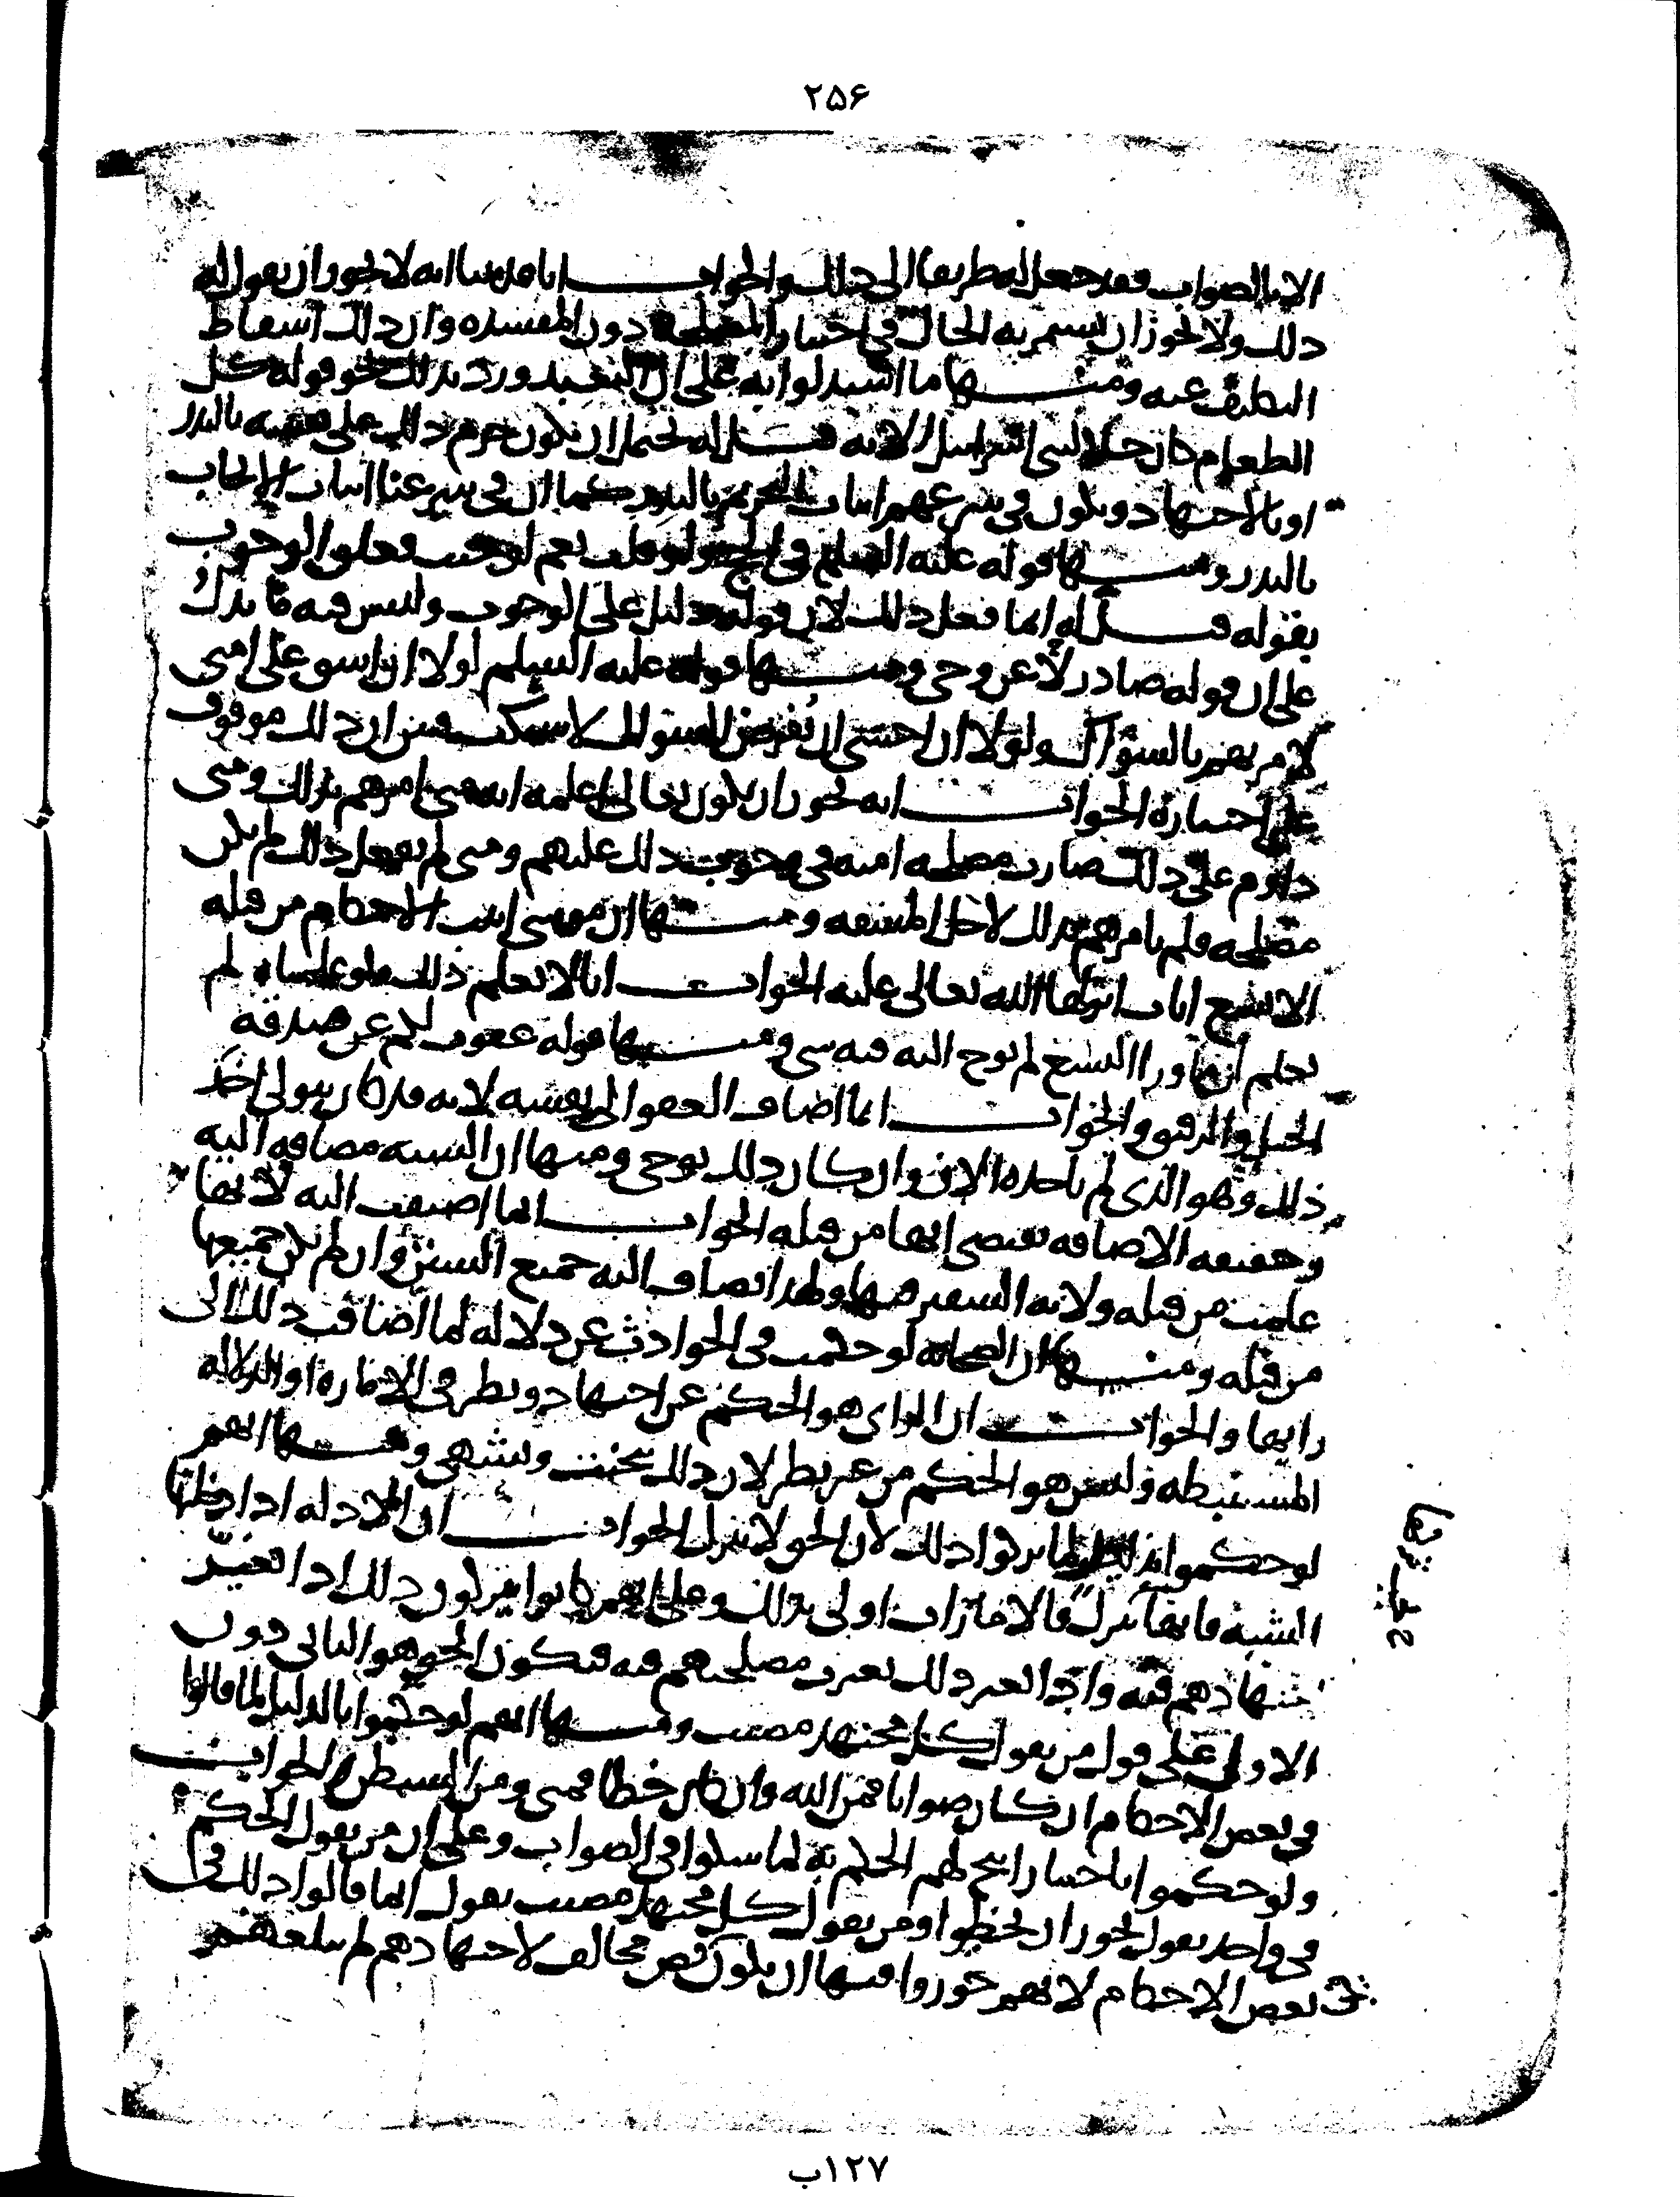 ٢٥۶
الا بالصواب فقد جعل له طريقا الى ذلك والجواب انا قد بينا انه لا يجوز ان يقول له
ذلك ولا يجوز ان يستمر به الحال في اختيار المصلحة دون المفسده وان ذلك اسقاط
التكليف عنه ومنها ما استدلوا به على ان التعبد ورد بذلك نحو قوله كل
الطعام كان حلا لبني اسرائيل الايه قيل له يحتمل ان يكون حرم ذلك على نفسه بالنذر
او بالاجتهاد ويكون في شرعهم اثبات التحريم بالنذر كما ان في شرعنا اثبات الايجاب
بالنذر ومنها قوله عليه السلم في الحج ولو قلت نعم لوجبت فعلق الوجوب
بقوله قيل له انما فعل ذلك لان قوله دليل على الوجوب وليس فيه ما يدل
على ان قوله صادر لا عن وحي ومنها قوله عليه السلم لولا ان اشق على امتي
لامرتهم بالسواك ولولا ان اخشى ان يفرض السواك لاستكت فبين ان ذلك موقوف
على اختياره الجواب انه يجوز ان يكون تعالى اعلمه انه متى امرهم بذلك ومتى
داوم على ذلك صارت مصلحه امته في وجوب ذلك عليهم ومتى لم يفعل ذلك لم يكن
مصلحه فلم يامرهم بذلك لاجل المشقه ومنها ان موسى اثبت الاحكام من قبله
الا تسع ايات انزلها الله تعالى عليه الجواب انا لا نعلم ذلك ولو علمناه لم
نعلم ان ما ورا التسع لم يوح اليه فيه شي ومنها قوله عفوت لكم عن صدقه
الخيل والرقيق والجواب انما اضاف العفو الى نفسه لانه قد كان يتولى اخذ
ذلك وهو الذي لم ياخذه الان وان كان ذلك بوحي ومنها ان السنه مضافه اليه
وحقيقه الاضافه تقتضي انها من قبله الجواب انما اضيفت اليه لانها
علمت من قبله ولانه السفير فيها ولهذا تضاف اليه جميع السنن وان لم تكن جميعها
من قبله ومنها ان الصحابه لو حكمت في الحوادث عن دلاله لما اضافت ذلك الى
رايها والجواب ان الراي هو الحكم عن اجتهاد ونظر في الاماره او الدلاله
المستنبطه وليس هو الحكم من غير نظر لان ذلك تبخيت وتشهي ومنها انهم
لو حكموا لما تركوا ذلك لان الحق لا يترك الجواب ان الادله اذا دخلتها
الشبه فانها تترك فالامارات اولى بذلك وعلى انهم كانوا يتركون ذلك اذا تغير
اجتهادهم فيه واذا تغير ذلك تغيرت مصلحتهم فيه فيكون الحق هو الثاني دون
الاول على قول من يقول كل مجتهد مصيب ومنها انهم لو حكموا بالدليل لما قالوا
في بعض الاحكام ان كان صوابا فمن الله وان كان خطا فمني ومن الشيطن الجواب
ولو حكموا باختيار ابيح لهم الحكم به لما سلوا في الصواب وعلى ان من يقول الحكم
في واحد يقول يجوز ان يخطوا ومن يقول كل مجتهد مصيب يقول انما قالوا ذلك في
بعض الاحكام لانهم جوزوا فيها ان يكون نص مخالف لاجتهادهم لم يبلغهم
١٢٧ب